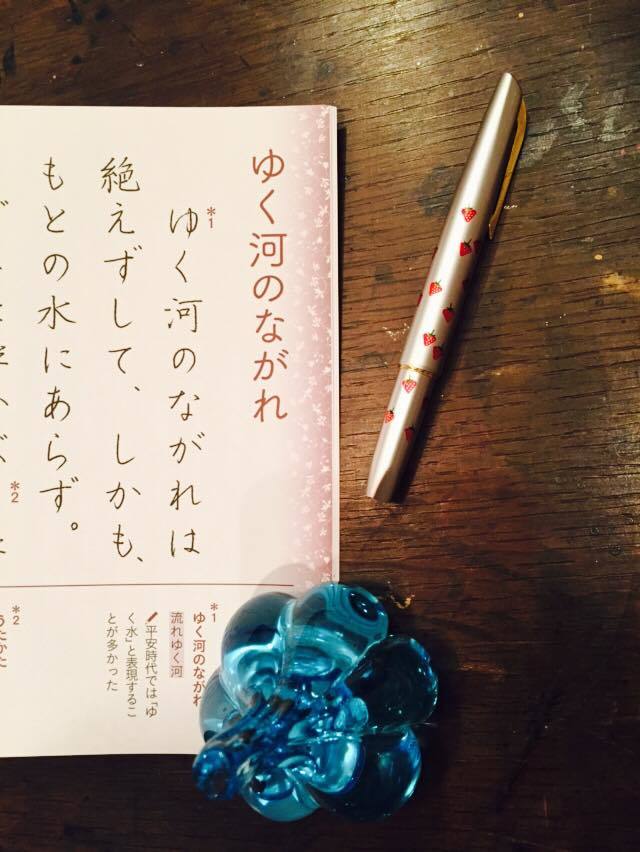 ゆく河のながれ
*1
ゆく河のながれは
絶えずして、しかも、
もとの水にあらず。
*2
*1
ゆく河のながれ
流れゆく河
平安時代では「ゆ
く水」と表現するこ
とが多かった
*2
うたかた